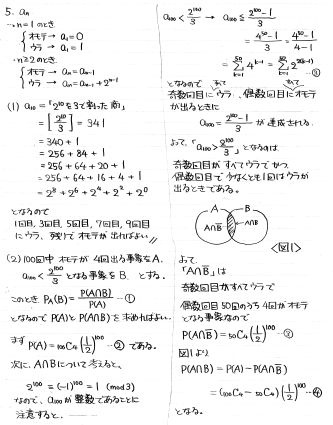 5. an
・n=1のとき
オモテ → a1=0
ウラ → a1=1
・n≧2のとき
オモテ → an=an-1
ウラ → an=an-1+2^{n-1}
(1) a10=「2^{10}を3で割った商」
=[2^{10}/3]=341
=340+1
=256+84+1
=256+64+20+1
=256+64+16+4+1
=2^8+2^6+2^4+2^2+2^0
となるので
1回目, 3回目, 5回目, 7回目, 9回目
にウラ、残りでオモテが出ればよい//
(2) 100回中 オモテが 4回出る事象をA.
a100<2^{100}/3 となる事象を B. とする。
このとき PA(B)=P(A∩B)/P(A) …①
となるので P(A)と P(A∩B)を求めればよい.
まず P(A)=100C4(1/2)^{100} …② である。
次に、A∩Bについて考えると、
2^{100}≡(-1)^{100}≡1 (mod 3)
なので、a100が整数であることに
注意すると、
a100<2^{100}/3 → a100≦(2^{100}-1)/3
=(4^{50}-1)/3=(4^{50}-1)/(4-1)
=Σ_{k=1}^{50}4^{k-1}=Σ_{k=1}^{50}2^{2(k-1)} …③
となるので
奇数回目にウラ、偶数回目にオモテ
が出るときに
a100=(2^{100}-1)/3 が達成される.
よって、「a100>2^{100}/3」となるのは
奇数回目がすべてウラでかつ
偶数回目で少なくとも1回はウラが
出るときである。
A B
A∩B̅ A∩B
<図1>
よって
「A∩B̅」は
奇数回目がすべてウラで
偶数回目50回のうち4回がオモテ
となる事象なので
P(A∩B̅)=50C4(1/2)^{100} …③
図1より
P(A∩B)=P(A)-P(A∩B̅)
=(100C4-50C4)(1/2)^{100} …④
となる。